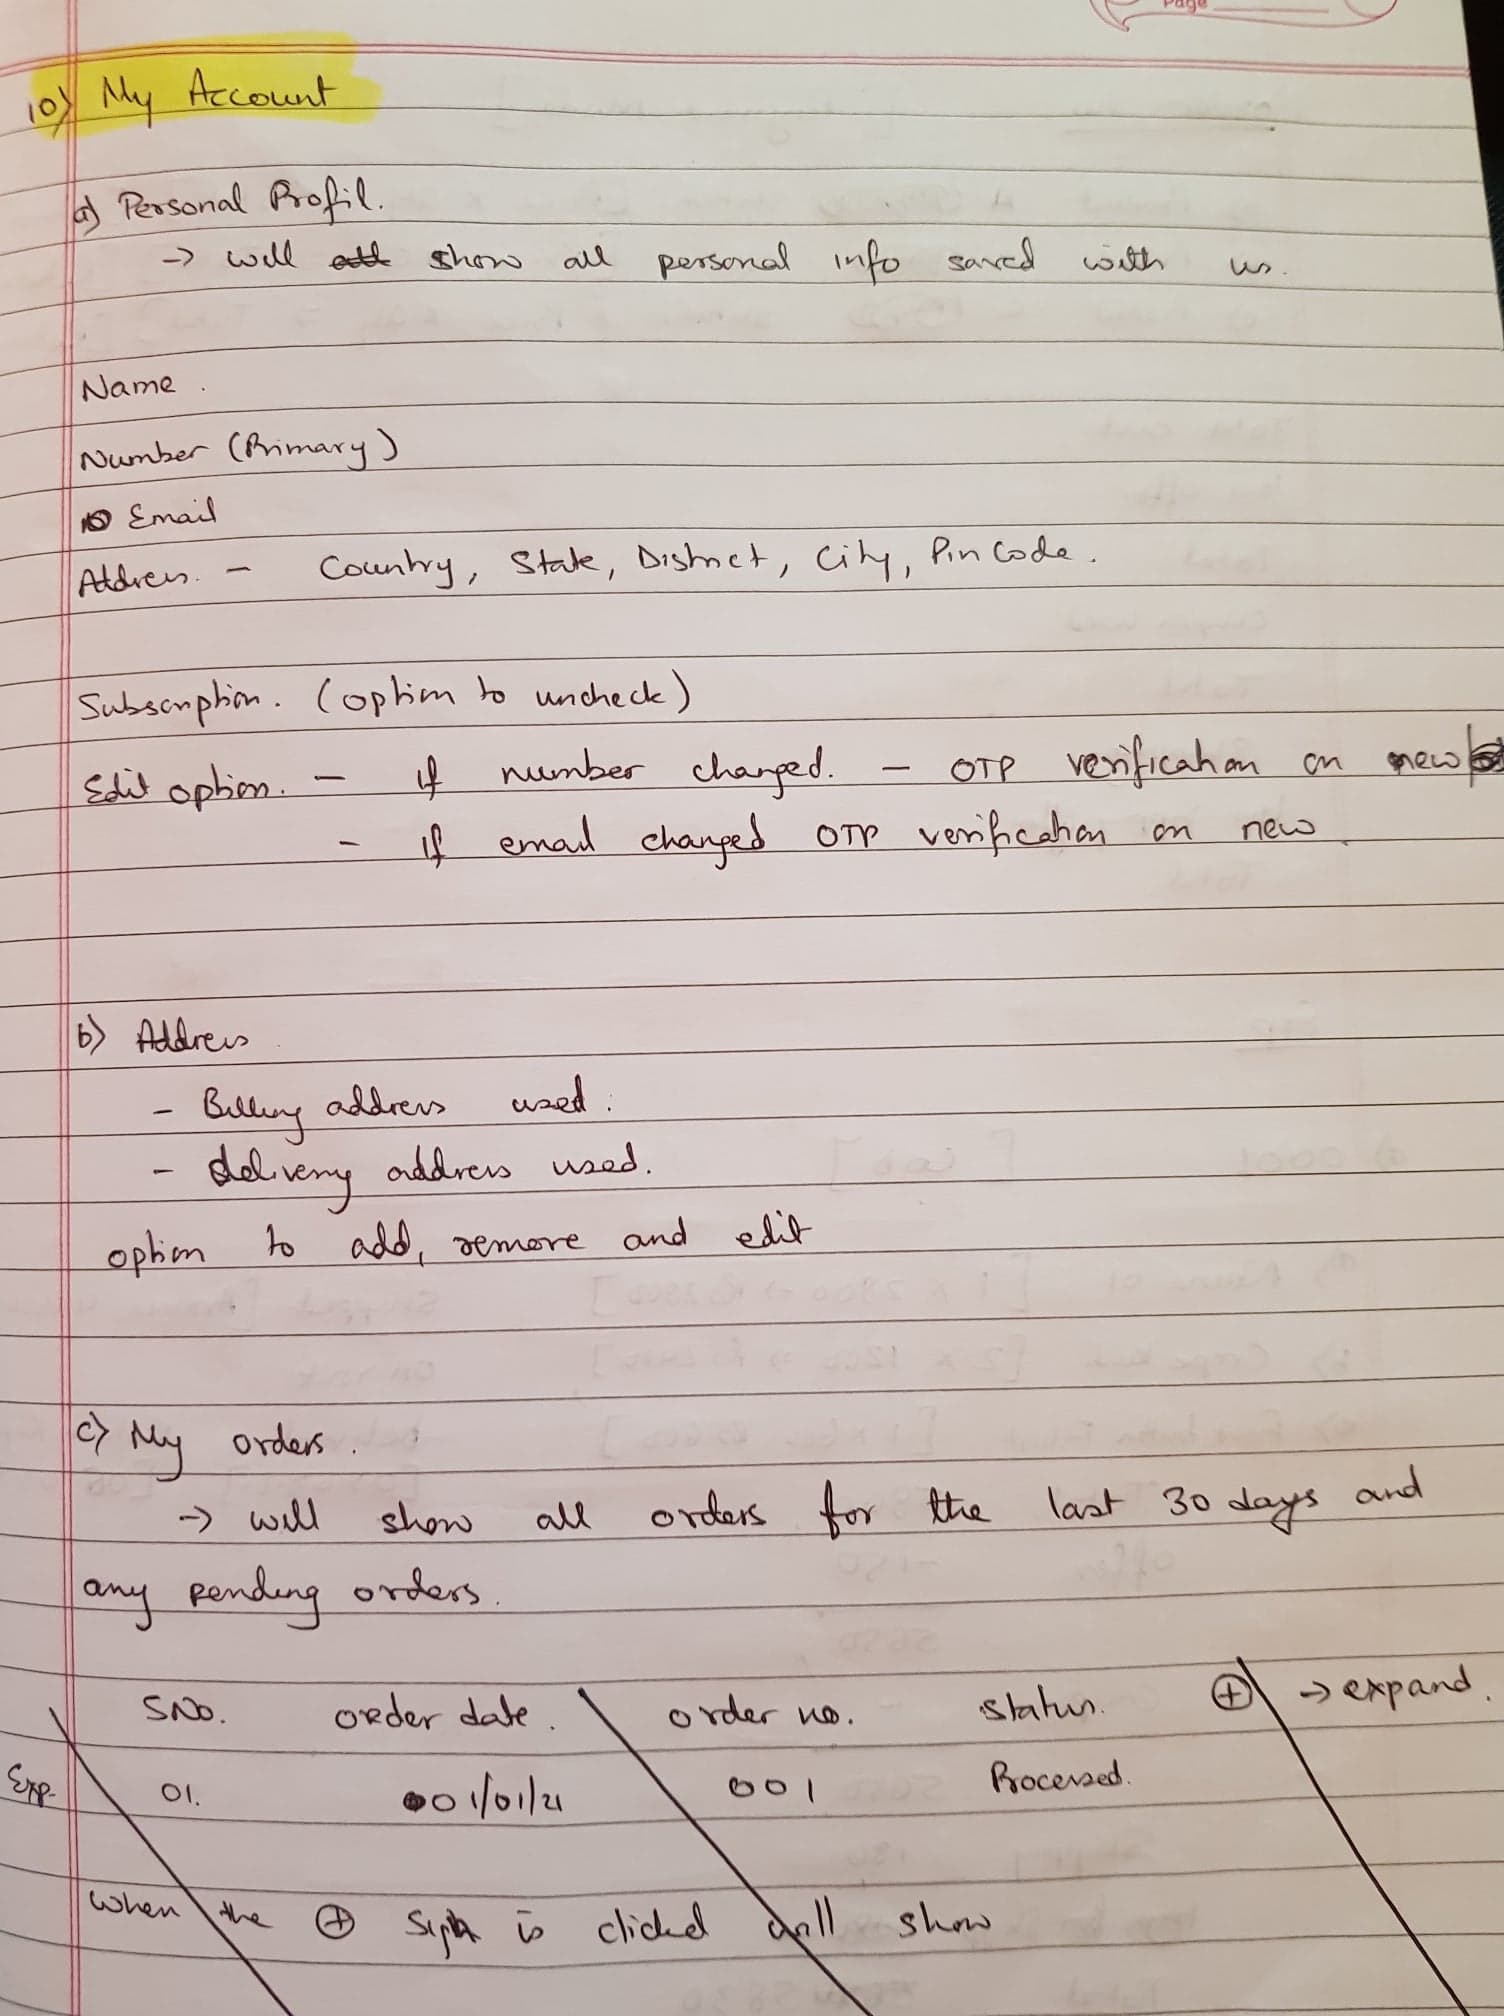 Page
10) My Account
a) Personal Profil.
→ will show all personal info saved with us.
Name.
Number (Primary)
Email
Address. - Country, State, District, City, Pin Code.
Subscription. (option to uncheck)
Edit option. - if number changed. - OTP verification on new
- if email changed OTP verification on new
b) Address
- Billing address used.
- delivery address used.
option to add, remove and edit
c) My orders.
→ will show all orders for the last 30 days and
any pending orders.
SNo. order date. order no. status. ⊕ → expand.
Exp. 01. 01/01/21 001 Processed.
When the ⊕ sign is clicked will show